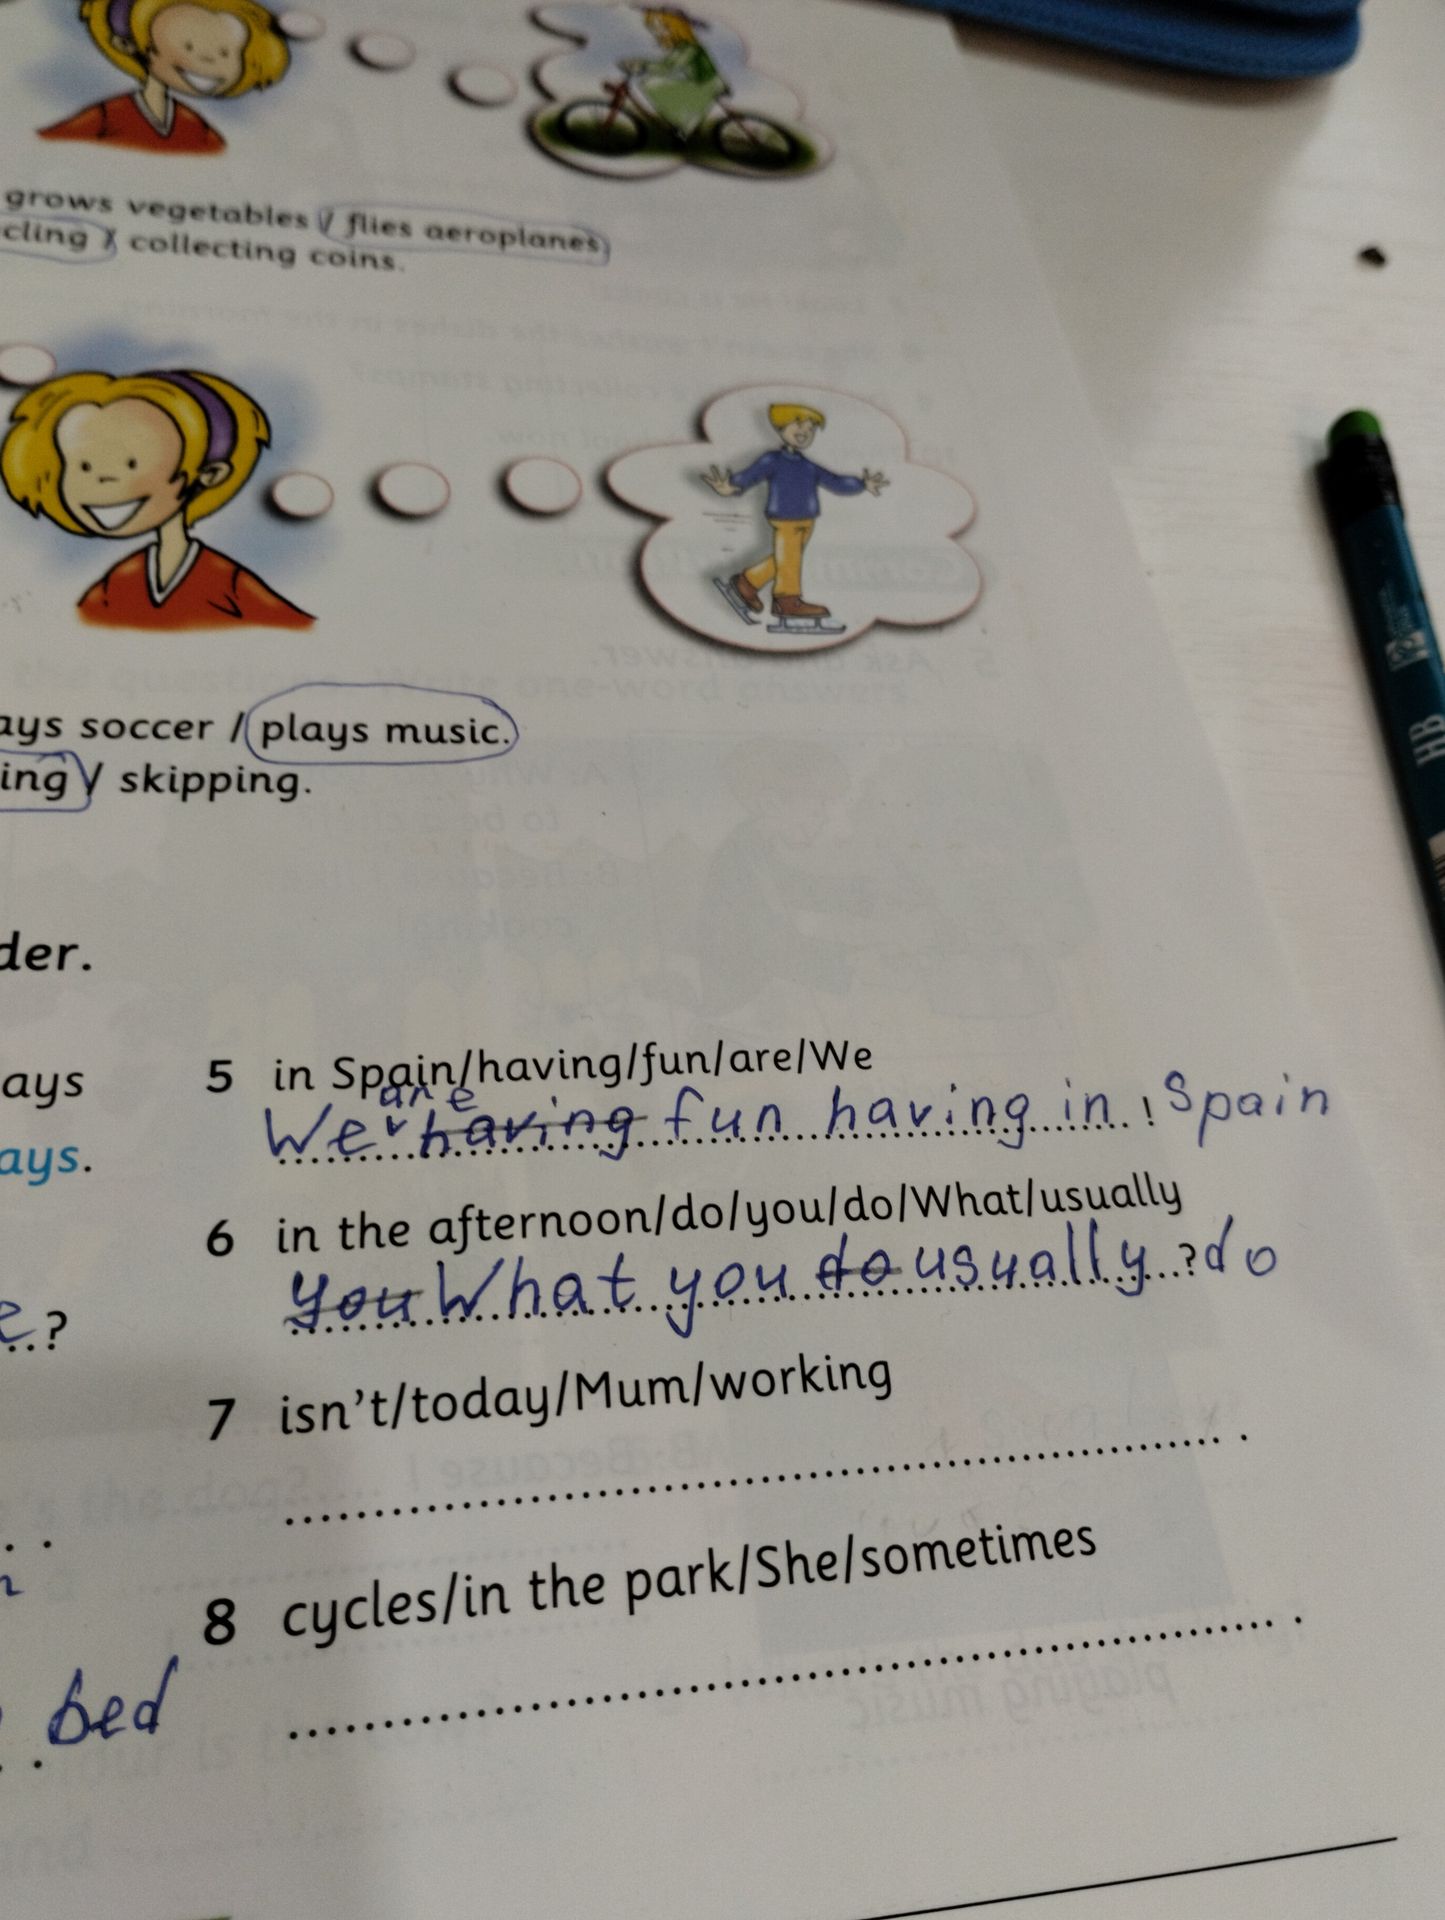 grows vegetables / flies aeroplanes
cling / collecting coins.
ays soccer / plays music.
ing / skipping.
der.
ays
ays.
e ..?
bed
5 in Spain/having/fun/are/We
are
We having fun having in ! Spain
6 in the afternoon/do/you/do/What/usually
you What you do usually ? do
7 isn't/today/Mum/working
8 cycles/in the park/She/sometimes
HB